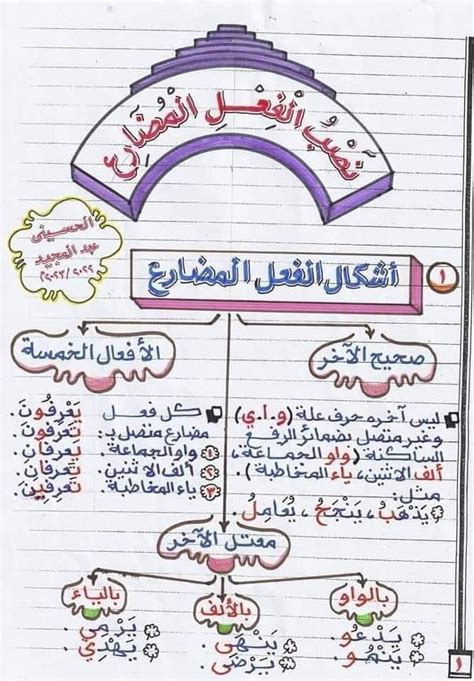 نَصْبُ الْفِعْلِ الْمُضَارِعِ
الحسينى
عبد المجيد
٢٠٢٢/٢٠٢٣م
١
أشكال الفعل المضارع
صحيح الآخر
ليس آخره حرف علة (و.ا.ي)
وغير متصل بضمائر الرفع
الساكنة (واو الجماعة،
ألف الاثنين، ياء المخاطبة).
مثل:
يَذْهَبُ، يَنْجَحُ، يُعَامِلُ.
الأفعال الخمسة
كل فعل يَعْرِفُونَ.
مضارع متصل بـ: تَعْرِفُونَ.
١ واو الجماعة. يَعْرِفَانِ.
٢ ألف الاثنين. تَعْرِفَانِ.
٣ ياء المخاطبة. تَعْرِفِينَ.
معتل الآخر
بالواو
يَدْعُو.
يَنْمُو.
بالألف
يَنْهَى.
يَرْضَى.
بالياء
يَرْمِي.
يَهْدِي.
١